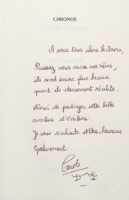 CHRONOS
A vous tous chers lecteurs,
Puissiez vous vivre vos rêves,
ils sont encore plus beaux
quand ils deviennent réalité.
Merci de partager cette belle
aventure d'écriture.
Je vous souhaite d'être heureux
Spatialement
Carole